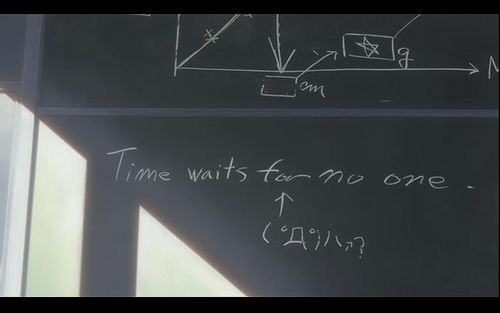 g
cm
Time waits for no one.
(゚Д゚)ハァ?